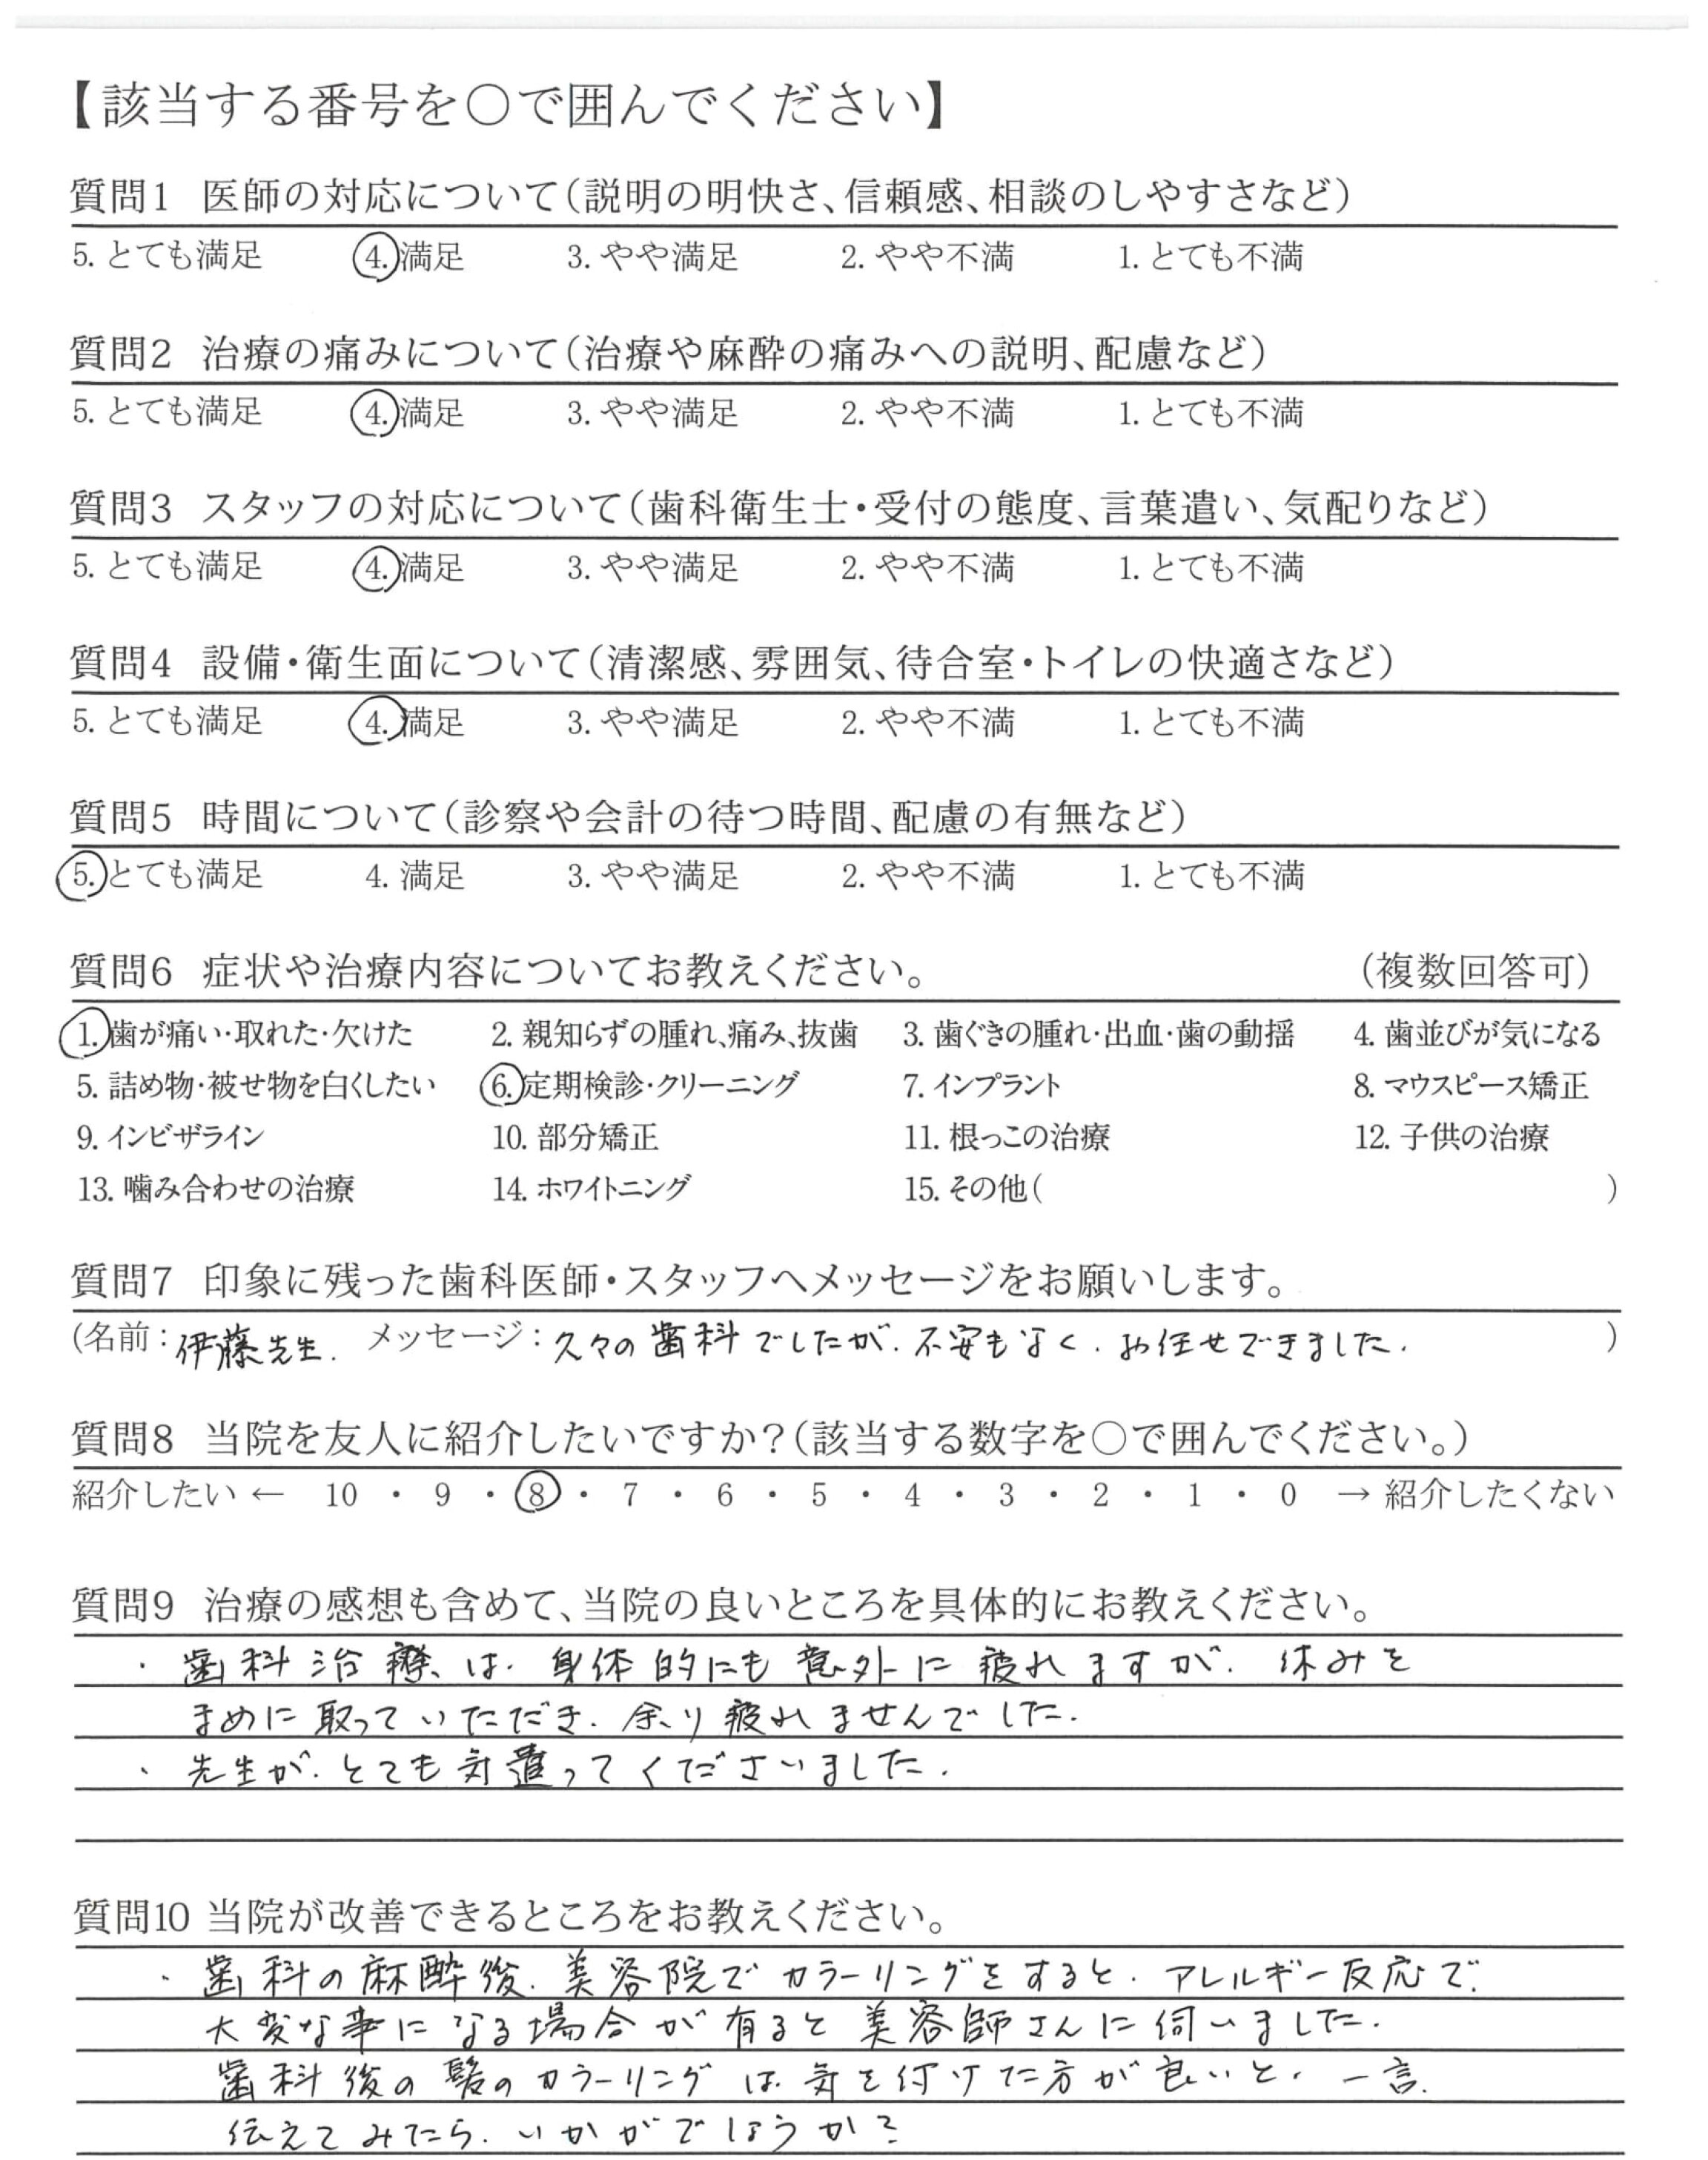 【該当する番号を○で囲んでください】
質問1 医師の対応について(説明の明快さ、信頼感、相談のしやすさなど)
5. とても満足 4. 満足 3. やや満足 2. やや不満 1. とても不満
質問2 治療の痛みについて(治療や麻酔の痛みへの説明、配慮など)
5. とても満足 4. 満足 3. やや満足 2. やや不満 1. とても不満
質問3 スタッフの対応について(歯科衛生士・受付の態度、言葉遣い、気配りなど)
5. とても満足 4. 満足 3. やや満足 2. やや不満 1. とても不満
質問4 設備・衛生面について(清潔感、雰囲気、待合室・トイレの快適さなど)
5. とても満足 4. 満足 3. やや満足 2. やや不満 1. とても不満
質問5 時間について(診察や会計の待つ時間、配慮の有無など)
5. とても満足 4. 満足 3. やや満足 2. やや不満 1. とても不満
質問6 症状や治療内容についてお教えください。 (複数回答可)
1. 歯が痛い・取れた・欠けた 2. 親知らずの腫れ、痛み、抜歯 3. 歯ぐきの腫れ・出血・歯の動揺 4. 歯並びが気になる
5. 詰め物・被せ物を白くしたい 6. 定期検診・クリーニング 7. インプラント 8. マウスピース矯正
9. インビザライン 10. 部分矯正 11. 根っこの治療 12. 子供の治療
13. 噛み合わせの治療 14. ホワイトニング 15. その他( )
質問7 印象に残った歯科医師・スタッフへメッセージをお願いします。
(名前:伊藤先生. メッセージ:久々の歯科でしたが、不安もなく、お任せできました. )
質問8 当院を友人に紹介したいですか?(該当する数字を○で囲んでください。)
紹介したい ← 10 ・ 9 ・ 8 ・ 7 ・ 6 ・ 5 ・ 4 ・ 3 ・ 2 ・ 1 ・ 0 → 紹介したくない
質問9 治療の感想も含めて、当院の良いところを具体的にお教えください。
・歯科治療は、身体的にも意外に疲れますが、休みを
まめに取っていただき、余り疲れませんでした.
・先生が、とても気遣ってくださいました.
質問10 当院が改善できるところをお教えください。
・歯科の麻酔後、美容院でカラーリングをすると、アレルギー反応で、
大変な事になる場合が有ると美容師さんに伺いました.
歯科後の髪のカラーリングは、気を付けた方が良いと、一言、
伝えてみたら、いかがでしょうか?